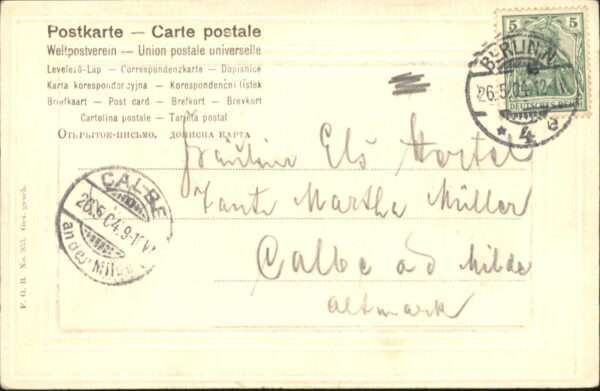 Postkarte — Carte postale
Weltpostverein — Union postale universelle
Levelező-Lap — Correspondenzkarte — Dopisnice
Karta korespondencyjna — Korespondenční lístek
Briefkaart — Post card — Brefkort — Brevkort
Cartolina postale — Tarjeta postal
Открытое письмо.
5 5
DEUTSCHES REICH
BERLIN N.
26.5.04.12
* 4 e
Fräulein Els
Tante Martha Müller
Calbe a d Milde
Altmark
CALBE
26.5.04.9-
an der Milde
F. G. B. No. 353. Ges. gesch.